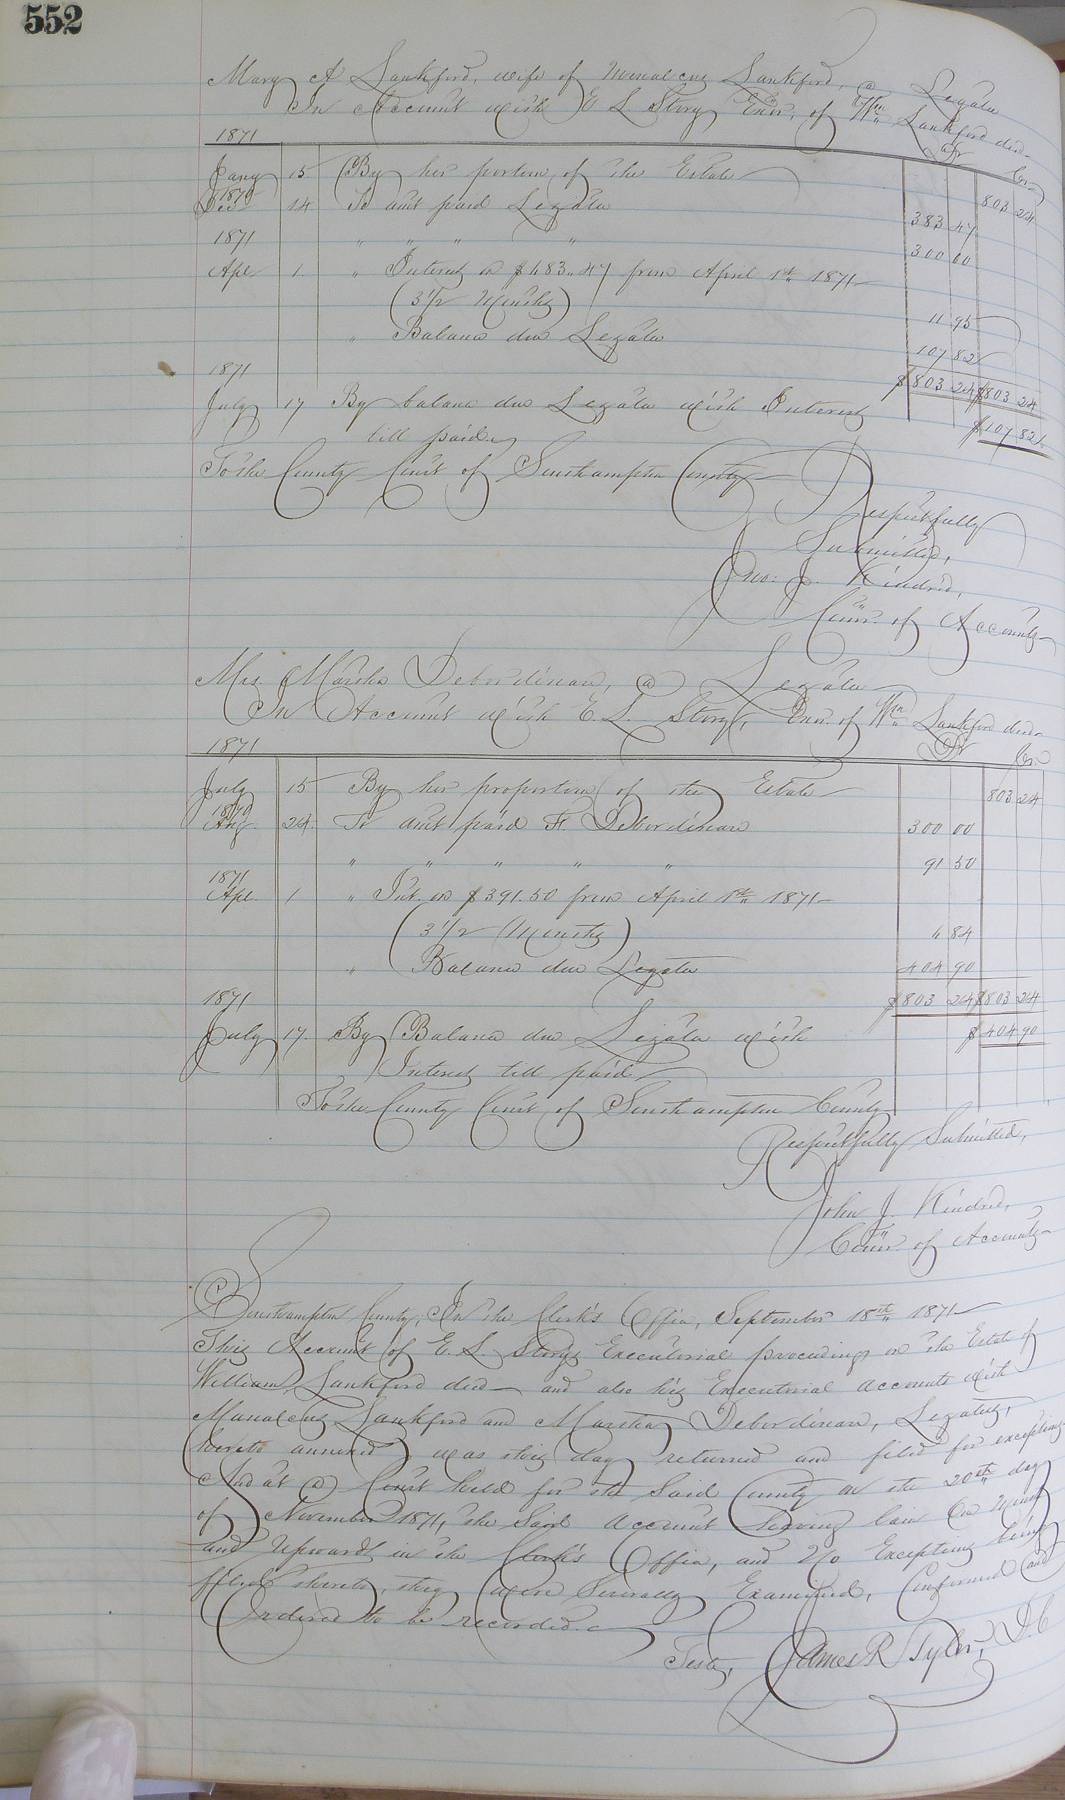 552
Mary A Lankford, wife of Lankford, a Legatee
In Account with E L Story Exor. of Wm Lankford decd.
1871 Dr Cr
Jany 15 By her portion of the Estate 803 24
1870
Dec 14 To amt paid Legatee 383 47
1871 " " " " 300 00
Apl 1 " Interest on $683.47 from April 1st 1871
(3 1/2 Months) 11 95
" Balance due Legatee 107 82
1871 $803 24 $803 24
July 17 By balance due Legatee with Interest $107 82
till paid
To the County Court of Southampton County
Respectfully
Submitted,
Jno: J. Kindred,
Comr. of Accounts
Mrs. Martha Deberdinan, a Legatee
In Account with E. L. Story, Exor. of Wm Lankford decd.
1871 Dr Cr
July 15 By her proportion of the Estate 803 24
1870
Aug. 24. To amt paid F. Deberdinan 300 00
" " " " " 91 50
1871
Apl. 1 " Int. on $391.50 from April 1st 1871
(3 1/2 Months) " 6 84
" Balance due Legatee 404 90
1871 $803 24 $803 24
July 17. By Balance due Legatee with $404 90
Interest till paid
To the County Court of Southampton County
Respectfully Submitted,
John J. Kindred,
Comr. of Accounts
Southampton County, In the Clerk's Office, September 18th 1871
This Account of E. L. Storys Executorial proceedings on the Estate of
William Lankford decd and also his Executorial accounts with
Lankford and Martha Deberdinan, Legatees,
hereto annexed, was this day returned and filed for exceptions
And at a Court held for the Said County on the 20th day
of November 1871, the Said account having lain One Month
and Upwards in the Clerk's Office, and No Exceptions being
filed thereto, they were Severally Examined, Confirmed and
Ordered to be recorded.
Teste, James R Tyler, D.C